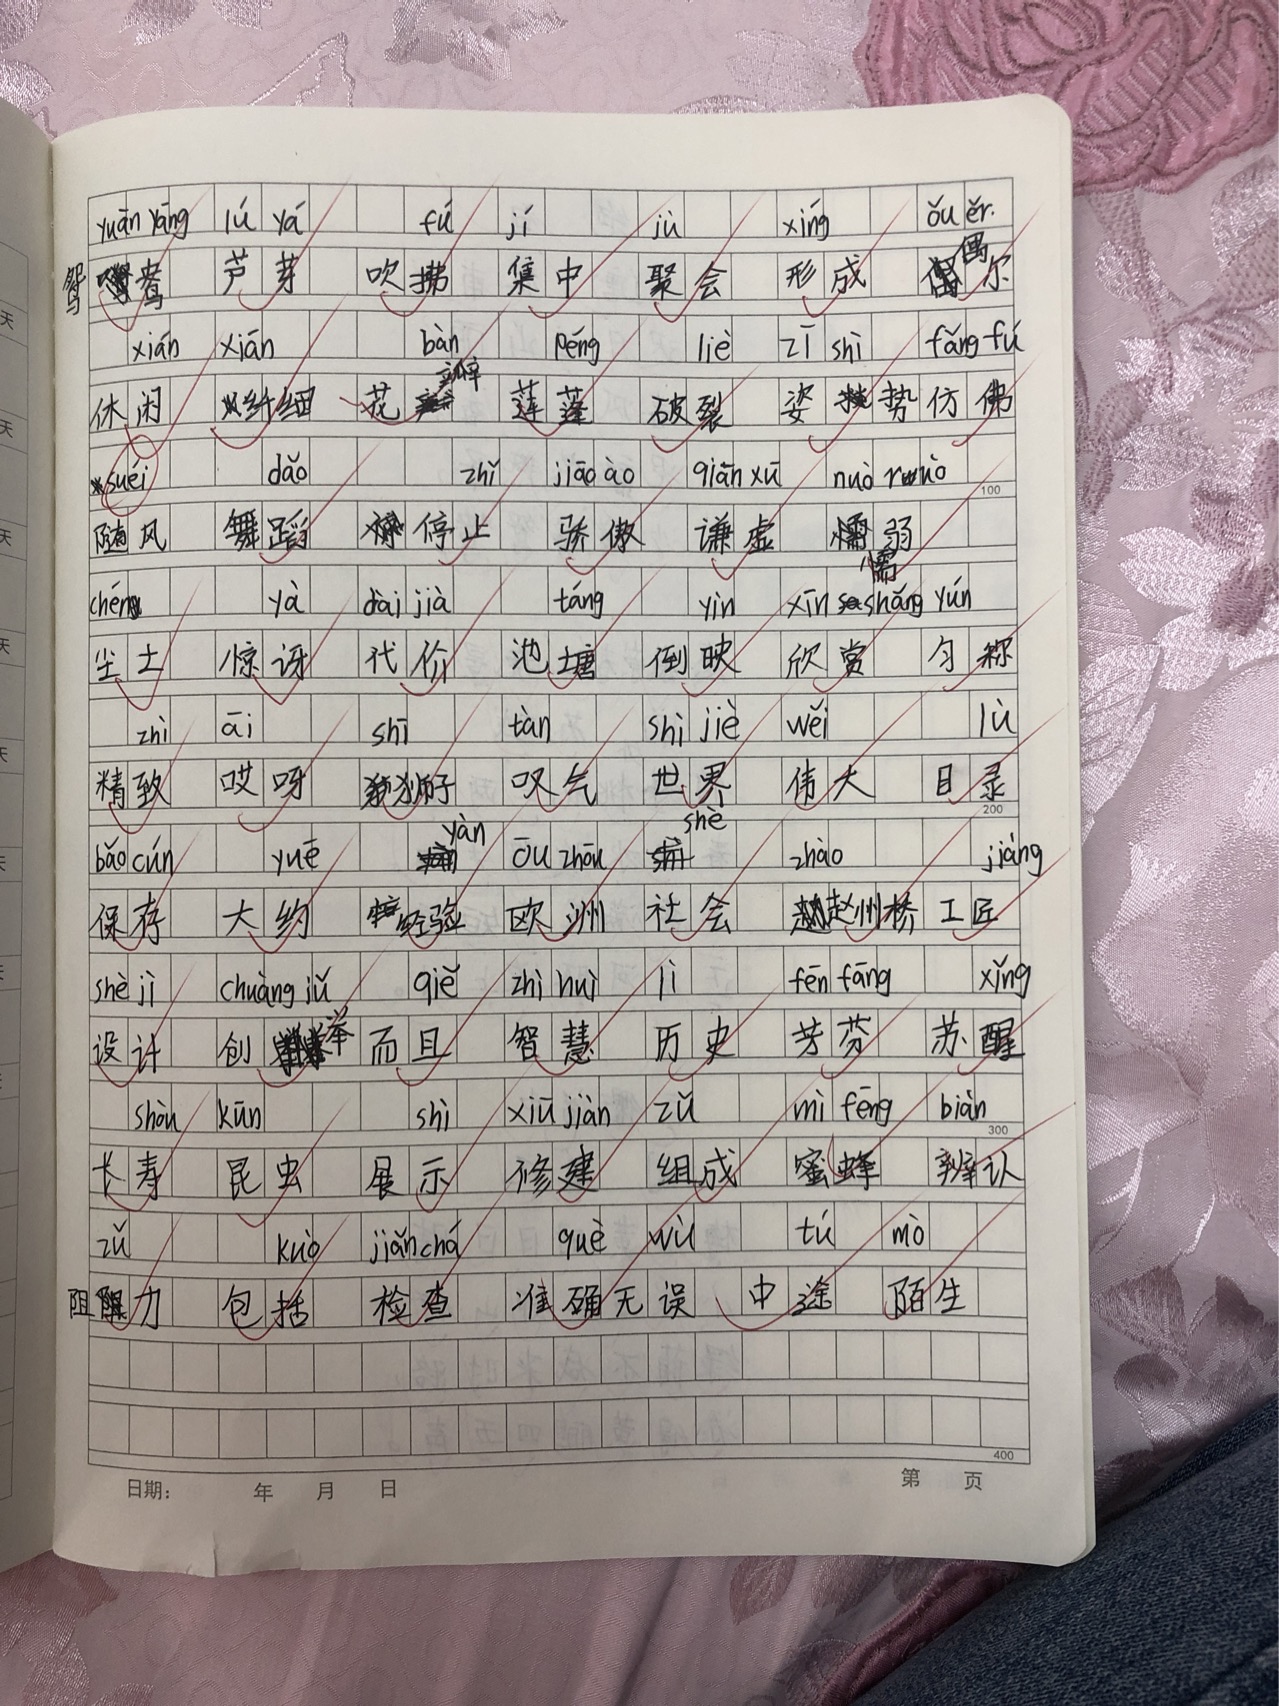 yuān yāng lú yá fú jí jù xíng ǒu ěr.
鸳 鸯 芦芽 吹拂 集中 聚会 形成 偶 尔
xián xiān bàn péng liè zī shì fǎng fú
休闲 纤细 花瓣 莲蓬 破裂 姿势 仿佛
suéi dǎo zhǐ jiāo ào qiān xū nuò ruò
随风 舞蹈 停止 骄傲 谦虚 懦弱
懦
chén yà dài jià táng yìn xīn shǎng yún
尘土 惊讶 代价 池塘 倒映 欣赏 匀称
zhì āi shī tàn shì jiè wěi lù
精致 哎呀 狮子 叹气 世界 伟大 目录
bǎo cún yuē yàn ōu zhōu shè zhào jiàng
保存 大约 经验 欧洲 社会 赵州桥 工匠
shè jì chuàng jǔ qiě zhì huì lì fēn fāng xǐng
设计 创举 而且 智慧 历史 芳芬 苏醒
shòu kūn shì xiū jiàn zǔ mì fēng biàn
长寿 昆虫 展示 修建 组成 蜜蜂 辨认
zǔ kuò jiǎn chá què wù tú mò
阻力 包括 检查 准确无误 中途 陌生
100
200
300
400
日期： 年 月 日 第 页
天
天
天
天
天
天
天
天
天